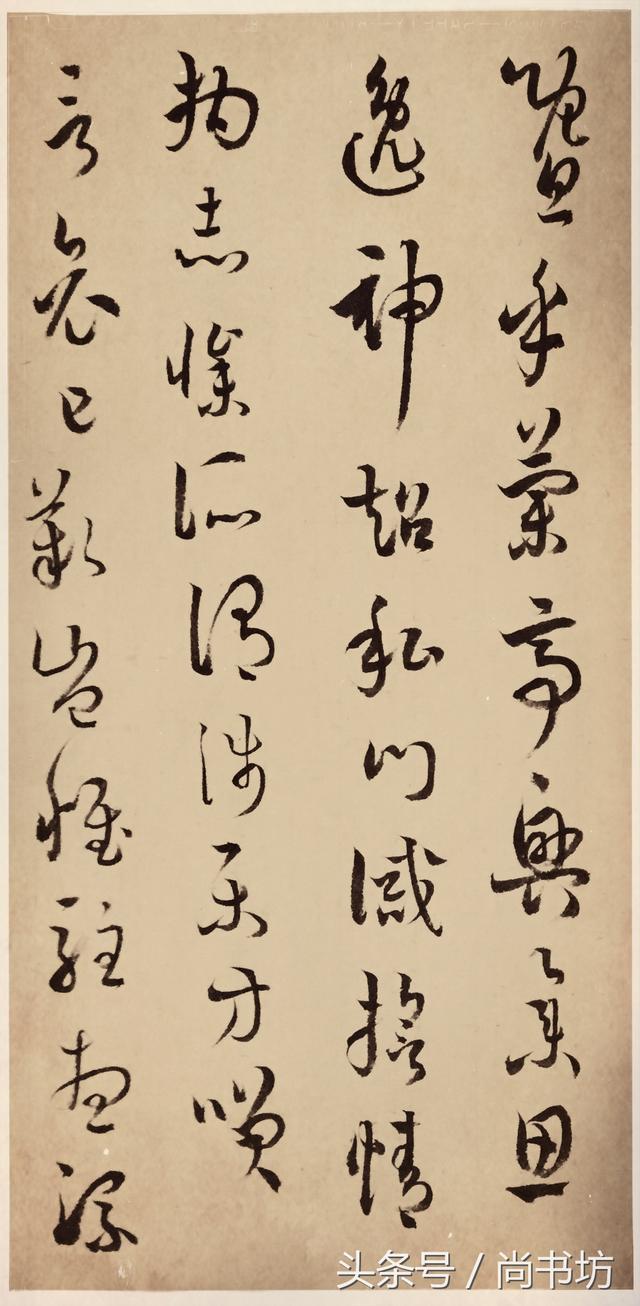 暨乎蘭亭興集思
逸神超私門誡誓情
拘志慘所謂涉樂方咲
言哀已歎豈惟駐想流
头条号 / 尚书坊